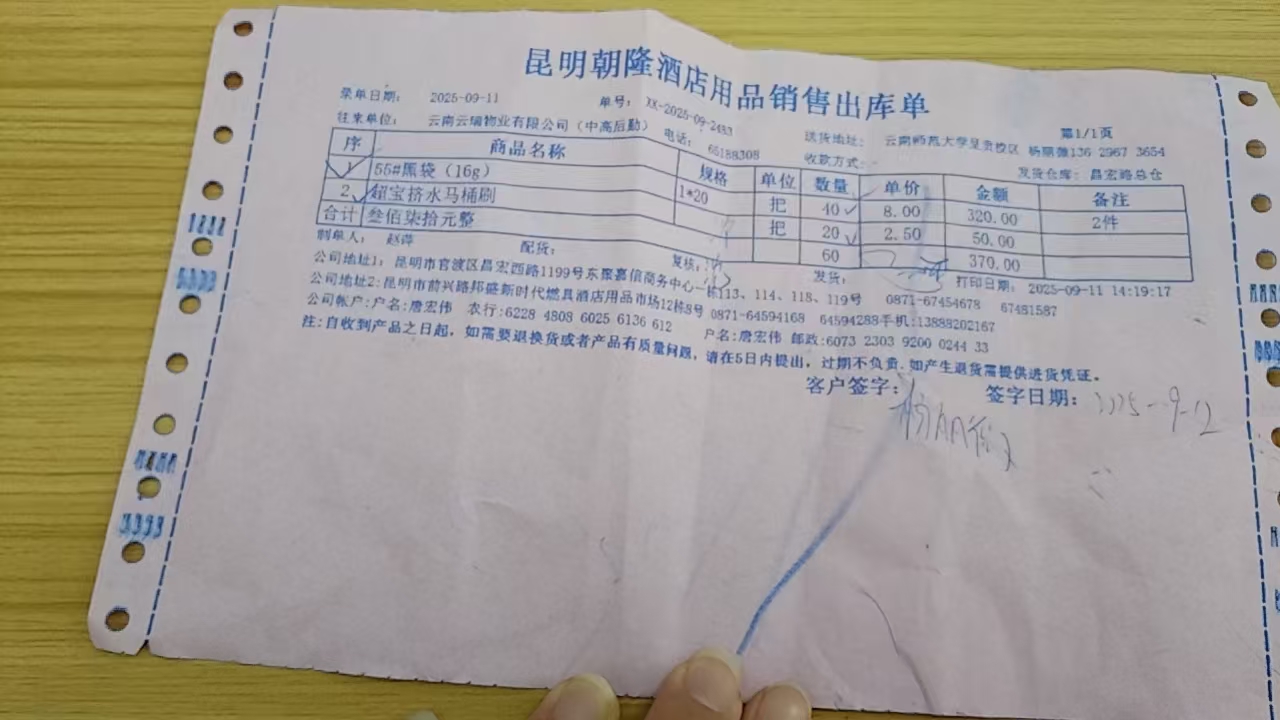 昆明朝隆酒店用品销售出库单
录单日期： 2025-09-11 单号： XK-2025-09-2483 第1/1页
往来单位： 云南云瑞物业有限公司（中高后勤） 电话： 65188308 送货地址： 云南师范大学呈贡校区 杨丽薇136 2967 3654
收款方式： 发货仓库： 昌宏路总仓
序 商品名称 规格 单位 数量 单价 金额 备注
55#黑袋（16g） 1*20 把 40 8.00 320.00 2件
2 超宝挤水马桶刷 把 20 2.50 50.00
合计 叁佰柒拾元整 60 370.00
制单人： 赵萍 配货： 复核： 发货： 打印日期： 2025-09-11 14:19:17
公司地址1：昆明市官渡区昌宏西路1199号东聚嘉信商务中心一栋113、114、118、119号 0871-67454678 67481587
公司地址2:昆明市前兴路邦盛新时代燃具酒店用品市场12栋8号 0871-64594168 64594288手机:13888202167
公司帐户:户名:唐宏伟 农行:6228 4808 6025 6136 612 户名:唐宏伟 邮政:6073 2303 9200 0244 33
注:自收到产品之日起，如需要退换货或者产品有质量问题，请在5日内提出，过期不负责.如产生退货需提供进货凭证。
客户签字： 签字日期： 2025-9-12